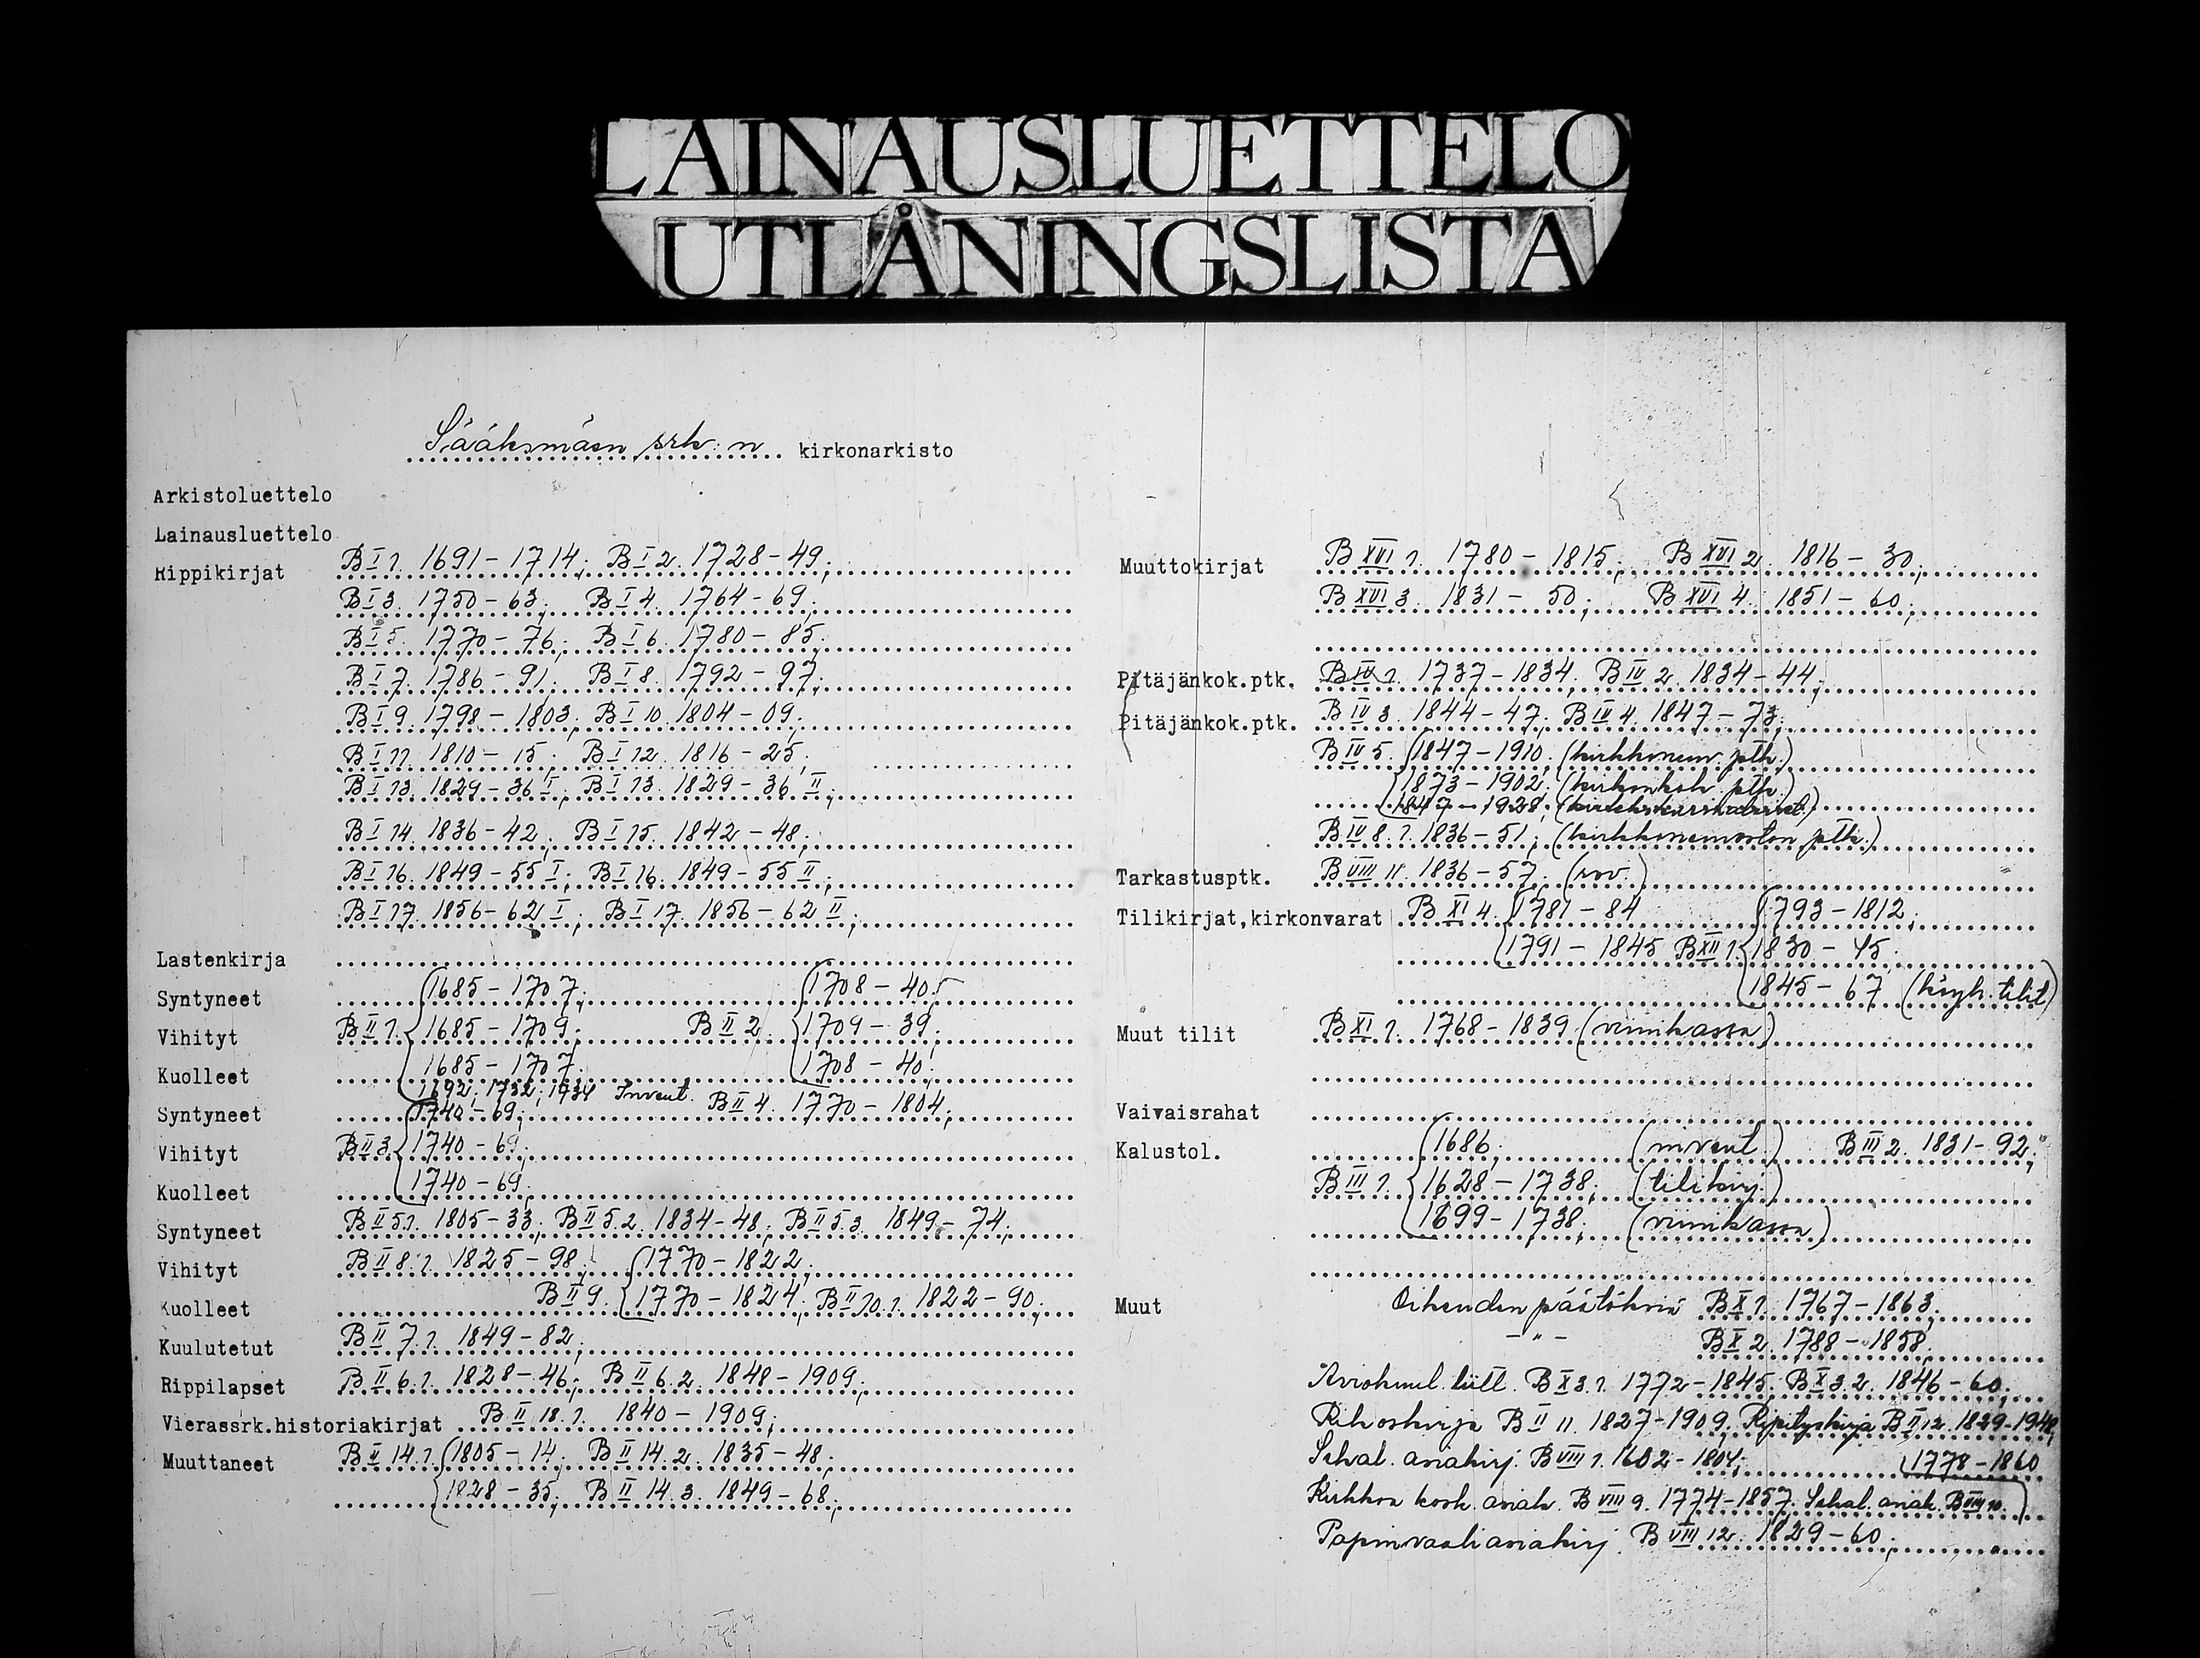 LAINAUSLUETTELO
UTLÅNINGSLISTA
Sääksmäen srk:n kirkonarkisto
Arkistoluettelo
Lainausluettelo
Rippikirjat B I 1. 1691-1714; B I 2. 1728-49;
B I 3. 1750-63; B I 4. 1764-69;
B I 5. 1770-76; B I 6. 1780-85;
B I 7. 1786-91; B I 8. 1792-97;
B I 9. 1798-1803; B I 10. 1804-09;
B I 11. 1810-15; B I 12. 1816-25;
B I 13. 1829-36 I; B I 13. 1829-36 II;
B I 14. 1836-42; B I 15. 1842-48;
B I 16. 1849-55 I; B I 16. 1849-55 II;
B I 17. 1856-62 I; B I 17. 1856-62 II;
Lastenkirja
Syntyneet 1685-1707; 1708-40;
Vihityt B II 1. 1685-1709; B II 2. 1709-39;
Kuolleet 1685-1707; 1708-40;
1692; 1732; 1734 Invent.
Syntyneet 1740-69; B II 4. 1770-1804;
Vihityt B II 3. 1740-69;
Kuolleet 1740-69;
Syntyneet B II 5.1. 1805-33; B II 5.2. 1834-48; B II 5.3. 1849-74;
Vihityt B II 8.1. 1825-98; 1770-1822;
Kuolleet B II 9. 1770-1824; B II 10.1. 1822-90;
Kuulutetut B II 7.1. 1849-82;
Rippilapset B II 6.1. 1828-46; B II 6.2. 1848-1909;
Vierassrk.historiakirjat B II 18.1. 1840-1909;
Muuttaneet B II 14.1. 1805-14; B II 14.2. 1835-48;
1828-35; B II 14.3. 1849-68;
Muuttokirjat B XVI 1. 1780-1815; B XVI 2. 1816-30;
B XVI 3. 1831-50; B XVI 4. 1851-60;
Pitäjänkok.ptk. B IV 1. 1737-1834; B IV 2. 1834-44;
Pitäjänkok.ptk. B IV 3. 1844-47; B IV 4. 1847-73;
B IV 5. 1847-1910; (kirkkoneuv. ptk.)
1873-1902; (kirkonkok. ptk.)
1847-1928;
B IV 8.1. 1836-51; (kirkkoneuvoston ptk.)
Tarkastusptk. B VIII 11. 1836-57; (rov.)
Tilikirjat,kirkonvarat B XI 4. 1781-84 1793-1812;
1791-1845 B XII 1. 1830-45;
1845-67 (köyh. tilit)
Muut tilit B XI 1. 1768-1839 (viinikassa)
Vaivaisrahat
Kalustol. 1686; (invent.) B III 2. 1831-92;
B III 1. 1628-1738; (tilikirj.)
1699-1738; (viinikassa)
Muut Oikeuden päätöksiä B X 1. 1767-1863;
-"- B X 2. 1788-1858;
Aviokuul. luett. B X 3.1. 1772-1845; B X 3.2. 1846-60;
Rikoskirja B II 11. 1827-1909; Ripityskirja B II 12. 1829-1948;
Sekal. asiakirj. B VIII 1. 1602-1804; 1778-1860
Kirkkoa kosk. asiak. B VIII 9. 1774-1857; Sekal. asiak. B VIII 10.
Papinvaaliasiakirj. B VIII 12. 1829-60;